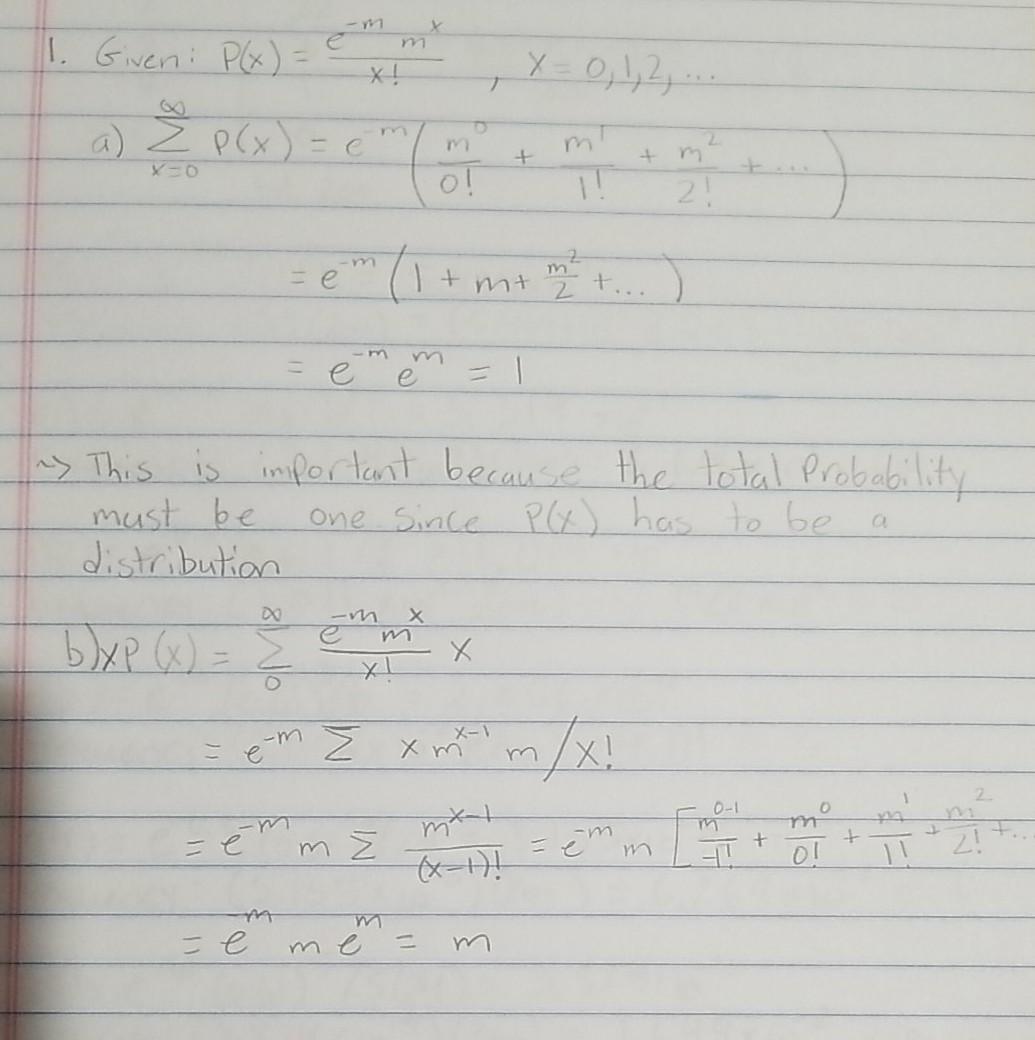 1. Given: P(x) = e^{-m} m^x / x! , x = 0,1,2,...
a) ∑_{x=0}^{∞} P(x) = e^{-m} ( m^0/0! + m^1/1! + m^2/2! + ... )
= e^{-m} ( 1 + m + m^2/2 + ... )
= e^{-m} e^m = 1
~> This is important because the total Probability
must be one since P(x) has to be a
distribution
b) xP(x) = ∑_0^∞ e^{-m} m^x / x! x
= e^{-m} ∑ x m^{x-1} m / x!
= e^{-m} m ∑ m^{x-1} / (x-1)! = e^{-m} m [ m^{0-1}/-1! + m^0/0! + m^1/1! + m^2/2! + ...
= e^{-m} m e^m = m